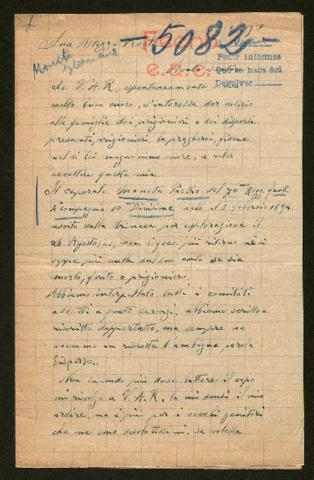 5082
Sua Altezza
Pedir informes
Devolver
Moneta
che V.A.R. spontaneamente
molto buon cuore, s'interessa dar notizie
alle famiglie dei prigionieri o dei dispersi
presunti prigionieri la pregherei, fidente
nel di lei magnanimo cuore, a voler
accettare questa mia.
Il caporale Moneta Pietro del 70mo Regg. fant.
2a Compagnia 10a Divisione nato il 5 gennaio 1894.
uscito dalla trincea per esplorazione il
28 Agosto, non fece più ritorno ne si
seppe più nulla sul suo conto se sia
morto, ferito o prigioniero.
Abbiamo interpellato tutti i comitati
addetti a questi servizi, abbiamo scritto e
riscritto dappertutto, ma sempre se
avemmo la risposta l'ambigua parola
Disperso.
Non sapendo più dove battere il capo
mi rivolgo a V.A.R. la mi scusi il mio
ardire, ma è più per i vecchi genitori
che ne sono desolatissimi, se volesse